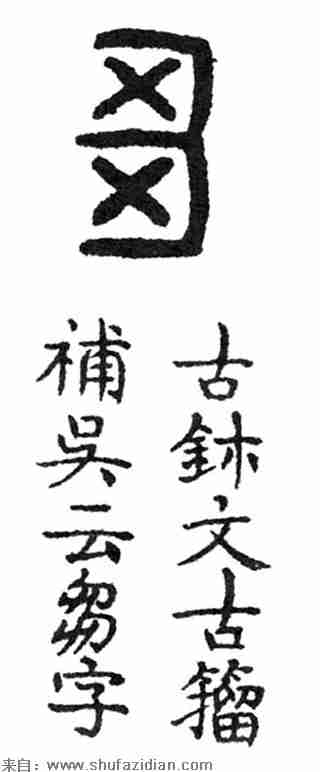 古鉢文古籀
補吳云芻字
来自：www.shufazidian.com